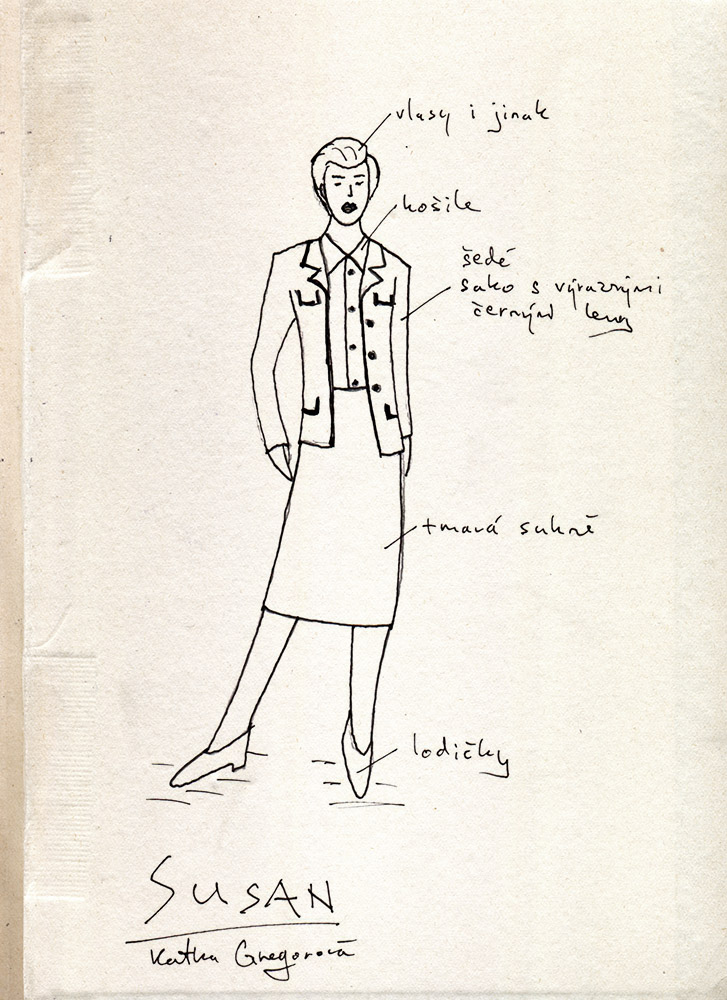 vlasy i jinak
košile
šedé
sako s výraznými
černými lemy
tmavá sukně
lodičky
SUSAN
Katka Gregorová